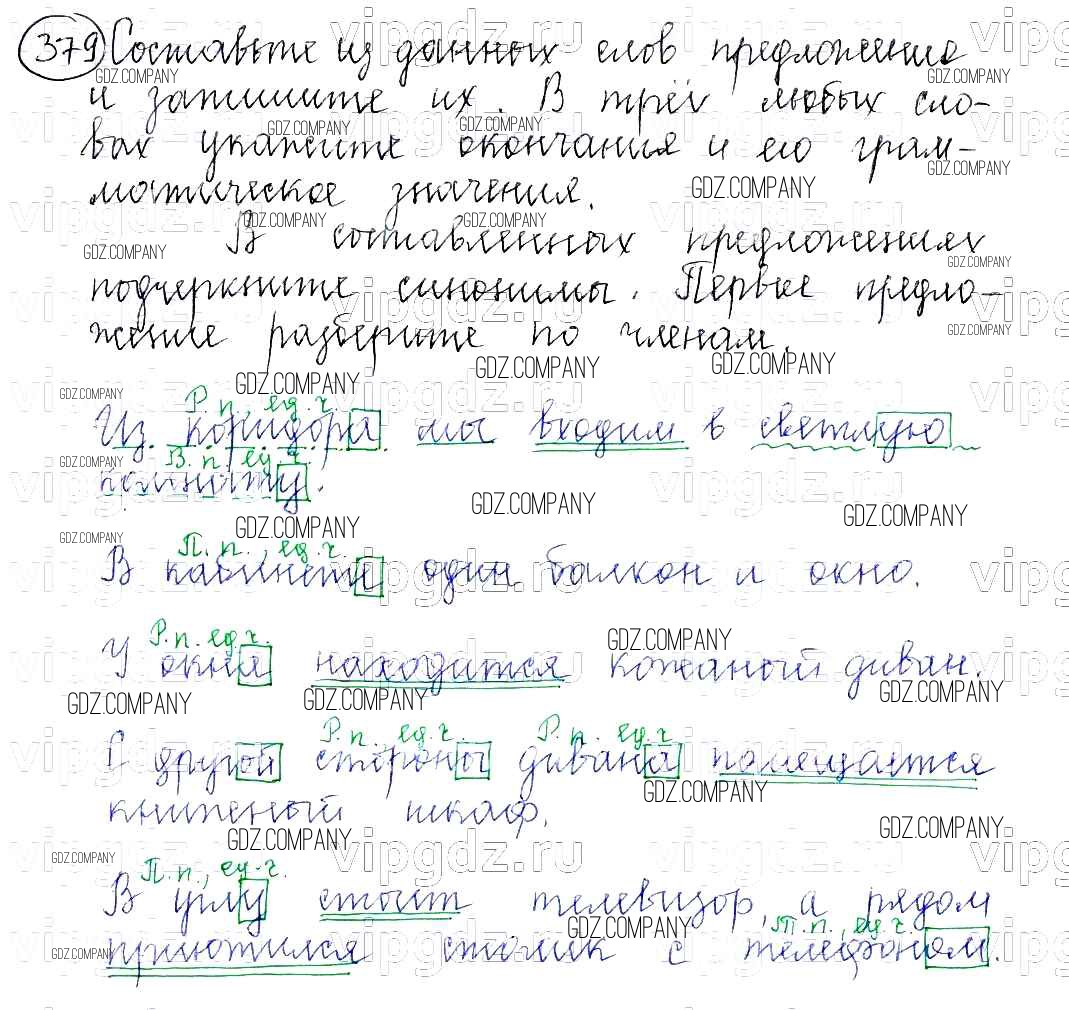 379 Составьте из данных слов предложение
и запишите их. В трёх любых сло-
вах укажите окончания и его грам-
матическое значения.
В составленных предложениях
подчеркните синонимы. Первое предло-
жение разберите по членам.
Р.п., ед.ч.
Из коридора мы входим в светлую
В.п. ед.ч.
комнату.
П.п., ед.ч.
В кабинете один балкон и окно.
Р.п. ед.ч.
У окна находится кожаный диван.
Р.п. ед.ч. Р.п. ед.ч.
С другой стороны дивана помещается
книжный шкаф.
П.п., ед.ч.
В углу стоит телевизор, а рядом
Т.п., ед.ч.
приютился столик с телефоном.